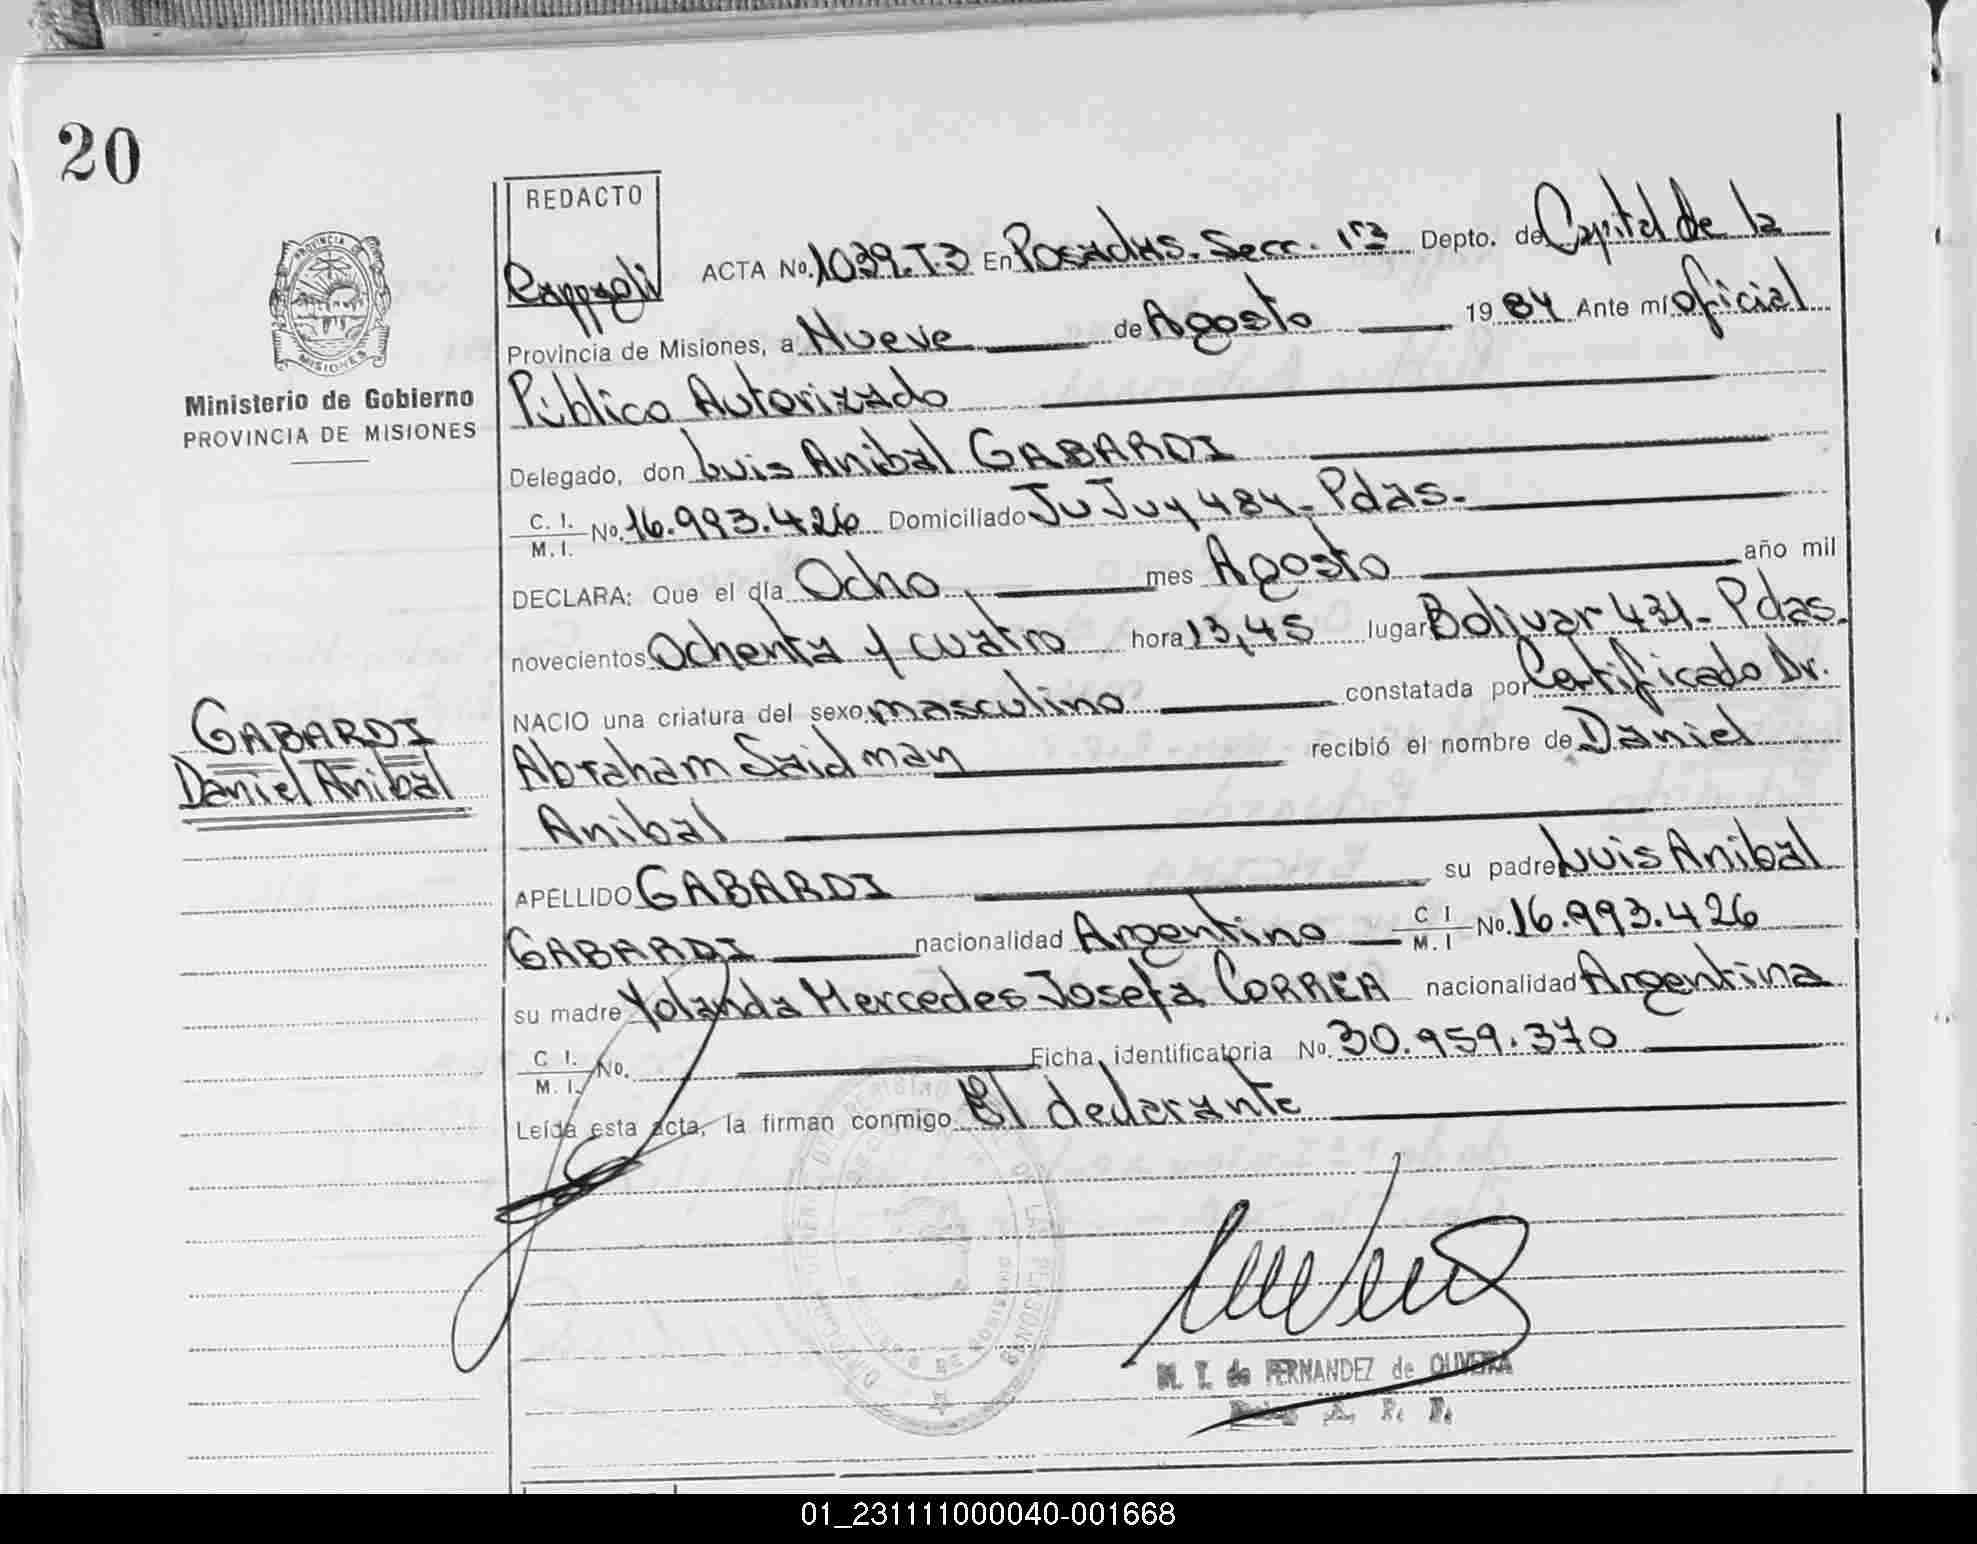 20
REDACTO
ACTA No. 1039.T.3 En Posadas. Secc. 1ra Depto. de Capital de la
Provincia de Misiones, a Nueve de Agosto 19 84 Ante mí oficial
Público Autorizado
Delegado, don Luis Anibal GABARDI
C. I.
M. I. No. 16.993.426 Domiciliado JuJuy 484 - Pdas.
DECLARA: Que el día Ocho mes Agosto año mil
novecientos Ochenta y cuatro hora 13,45 lugar Bolivar 431 - Pdas.
NACIO una criatura del sexo masculino constatada por Certificado Dr.
Abraham Saidman recibió el nombre de Daniel
Anibal
APELLIDO GABARDI su padre Luis Anibal
GABARDI nacionalidad Argentino C I
M. I No. 16.993.426
su madre Yolanda Mercedes Josefa CORREA nacionalidad Argentina
C I.
M. I. No. Ficha identificatoria No. 30.959.370
Leída esta acta, la firman conmigo El declarante
PROVINCIA DE
MISIONES
Ministerio de Gobierno
PROVINCIA DE MISIONES
GABARDI
Daniel Anibal
M. T. de FERNANDEZ de OLIVEIRA
01_231111000040-001668